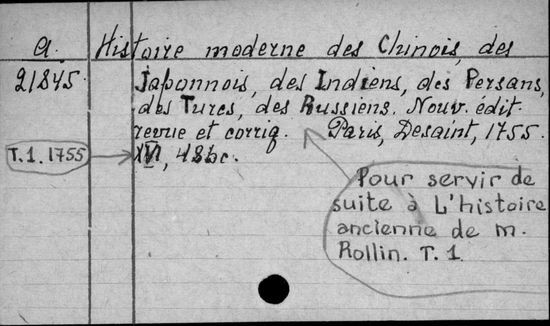 a. Histoire moderne des Chinois, des
21845. Japonnois, des Indiens, des Persans,
des Turcs, des Russiens. Nouv. édit.
revue et corrig. Paris, Desaint, 1755.
T.1. 1755 XVI, 48bc.
Pour servir de
suite à L'histoire
ancienne de m.
Rollin. T. 1.